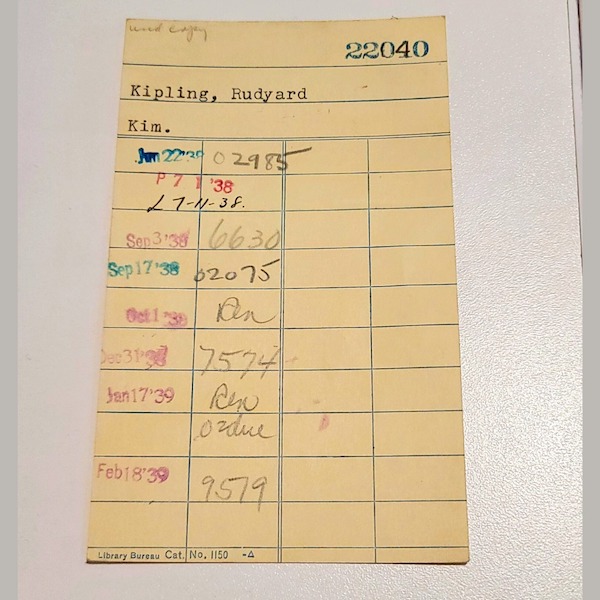 22040
Kipling, Rudyard
Kim.
Jun 22'38 02985
P 7 1 '38
L 7-11-38.
Sep 3 '38 6630
Sep 17 '38 02075
Oct 1 '38 Ren
Dec 31 '38 7574
Jan 17 '39 Ren
Feb 18 '39 9579
Library Bureau Cat. No. 1150 -4